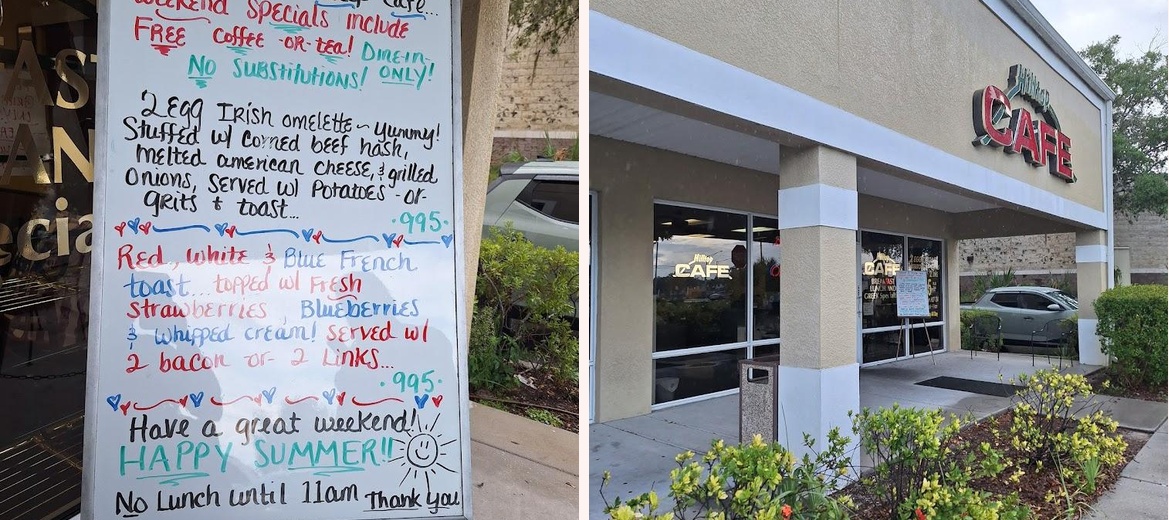 Cafe...
Weekend Specials include
FREE coffee -or- tea! Dine-in
No Substitutions! ONLY!
2 Egg Irish omelette ~ Yummy!
Stuffed w/ corned beef hash,
melted american cheese, & grilled
onions, served w/ Potatoes -or-
grits & toast...
.995.
Red, white & Blue French
toast... topped w/ Fresh
strawberries, Blueberries
& whipped cream! Served w/
2 bacon or 2 Links...
.995.
Have a great weekend!
HAPPY SUMMER!!
No Lunch until 11am Thank you
Hilltop
CAFE
Hilltop
CAFE
Hilltop
CAFE
BREAKFAST
LUNCH AND